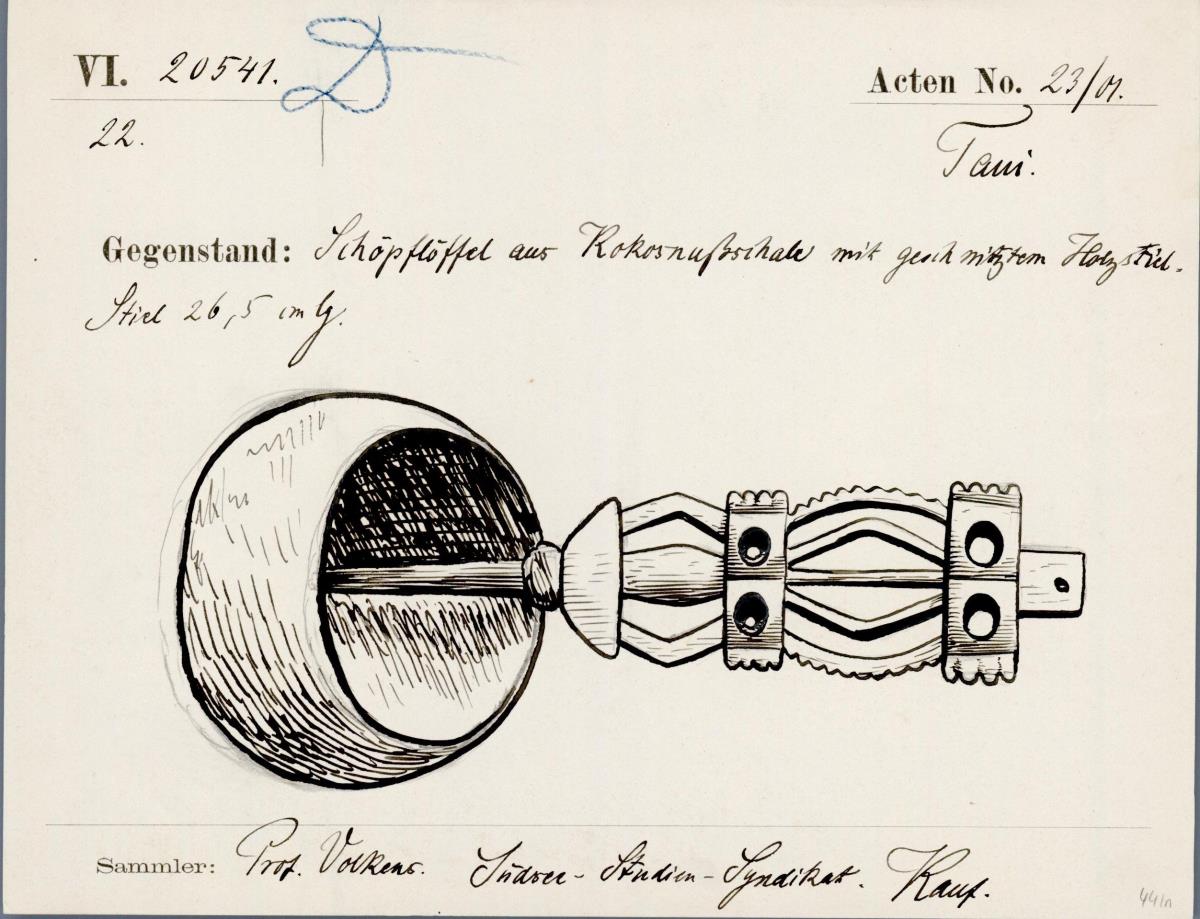 VI. 20541.
Acten No. 23/01.
22.
Taui.
Gegenstand: Schöpflöffel aus Kokosnußschale mit geschnitztem Holzstiel.
Stiel 26,5 cm lg.
Sammler: Prof. Volkens. Südsee-Studien-Syndikat. Kauf.